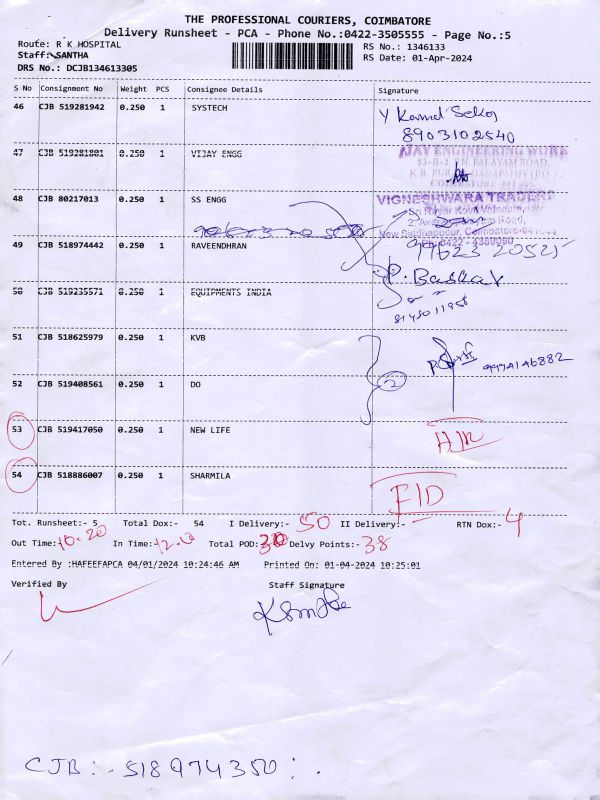 THE PROFESSIONAL COURIERS, COIMBATORE
Delivery Runsheet - PCA - Phone No.:0422-3505555 - Page No.:5
Route: R K HOSPITAL
RS No.: 1346133
Staff: SANTHA
RS Date: 01-Apr-2024
DRS No.: DCJB134613305
S No Consignment No Weight PCS Consignee Details Signature
46 CJB 519281942 0.250 1 SYSTECH
8903102540
47 CJB 519281801 0.250 1 VIJAY ENGG
AJAY ENGINEERING WORK
48 CJB 80217013 0.250 1 SS ENGG
VIGNESHWARA TRADERS
49 CJB 518974442 0.250 1 RAVEENDHRAN
P. Baskar
50 CJB 519235571 0.250 1 EQUIPMENTS INDIA
51 CJB 518625979 0.250 1 KVB
9994146882
52 CJB 519408561 0.250 1 DO
2
53 CJB 519417050 0.250 1 NEW LIFE
54 CJB 518886007 0.250 1 SHARMILA
Tot. Runsheet:- 5 Total Dox:- 54 I Delivery:- 50 II Delivery:- RTN Dox:- 4
Out Time:- 10.20 In Time:- Total POD: Delvy Points:- 38
Entered By :HAFEEFAPCA 04/01/2024 10:24:46 AM Printed On: 01-04-2024 10:25:01
Verified By Staff Signature
CJB:- 518974350:.